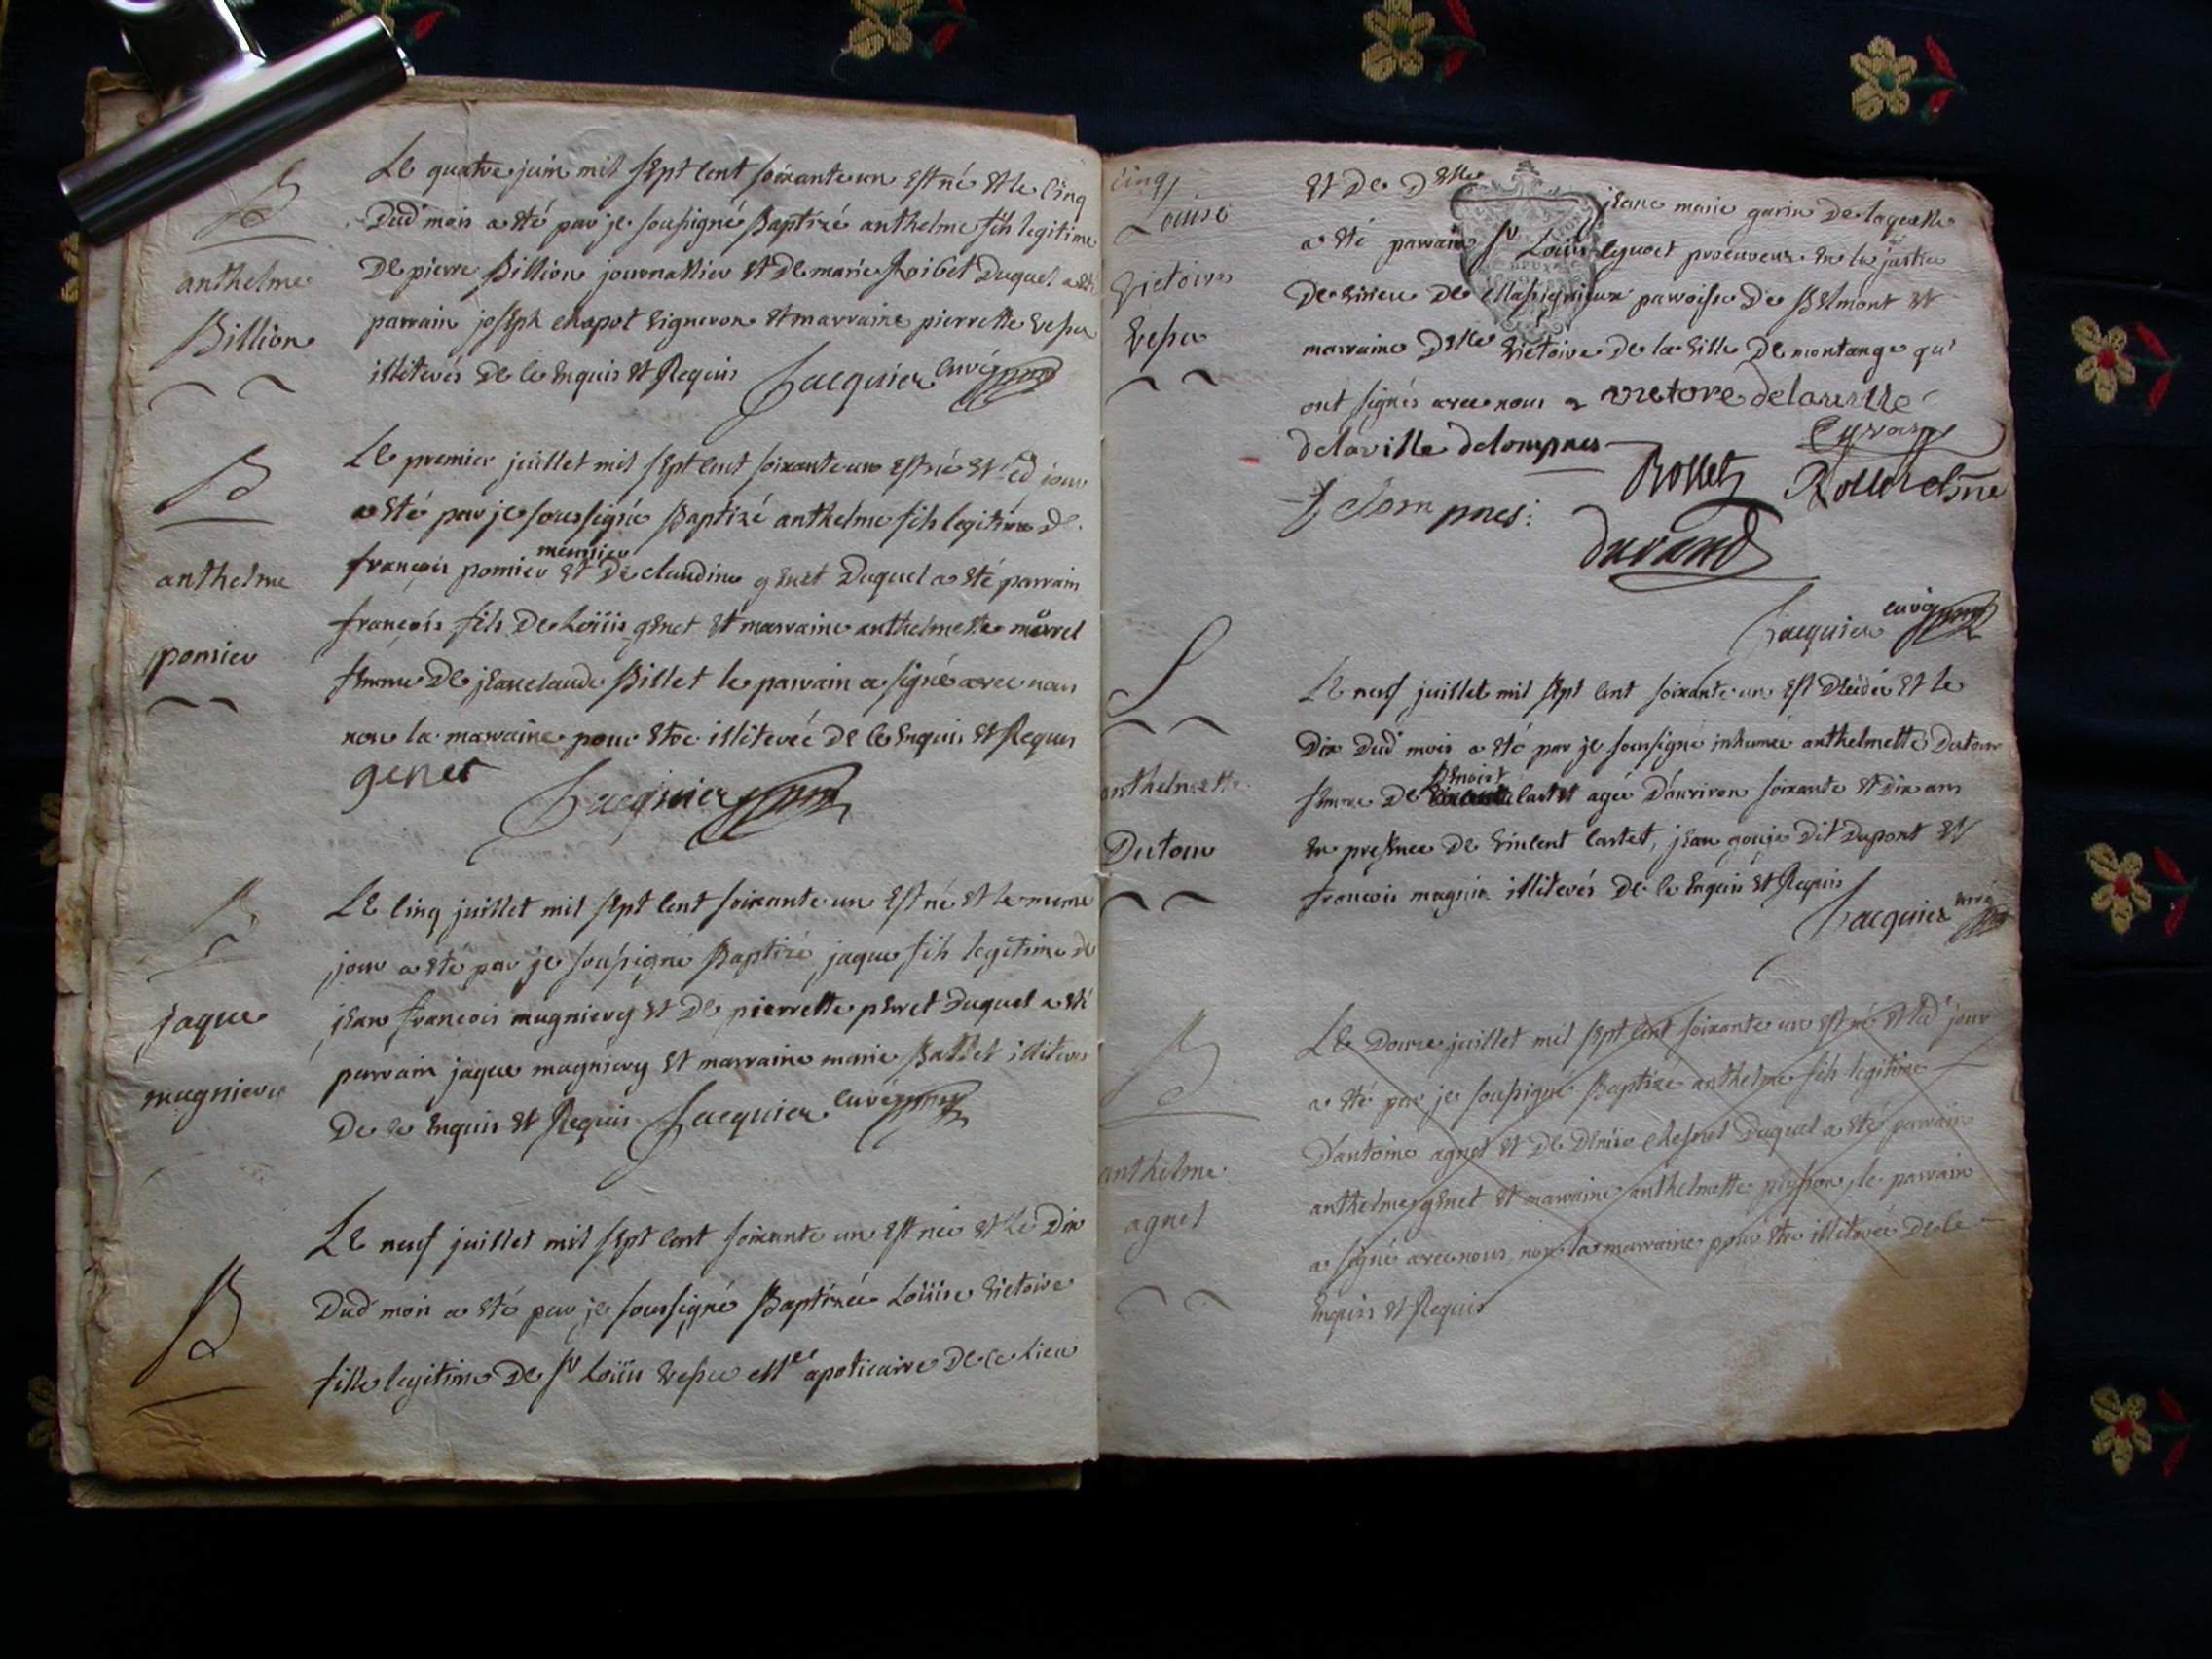 B
anthelme
Billion
Le quatre juin mil sept cent soixante un est né et le cinq
Dud mois a eté par je soussigné Baptizé anthelme fils legitime
De pierre Billion journallier et De marie Roibet Duquel a eté
parrain joseph chapot vigneron et marraine pierrette vessu
illiterés De ce enquis et Requis Jacquier curé
B
anthelme
pomier
Le premier juillet mil sept cent soixante un est né et led jour
a eté par je soussigné Baptizé anthelme fils legitime de
françois pomier meusnier et De claudine genet Duquel a eté parrain
françois fils De Loüis genet et marraine anthelmette morel
femme De jean claude Billet le parrain a signé avec nous
non la marraine pour etre illiterée de ce enquis et Requis
genet Jacquier
B
jaque
magnieru
Le cinq juillet mil sept cent soixante un est né et le meme
jour a eté par je soussigné Baptizé jaque fils legitime de
jean françois magniery et De pierrette peret Duquel a eté
parrain jaque magniery et marraine marie Ballet illiteres
De ce enquis et Requis Jacquier curé
B
Le neuf juillet mil sept cent soixante un est née et Le Dix
Dud mois a eté par je soussigné Baptizée Loüise victoire
fille legitime De sr Loüis vessu apoticaire De ce Lieu
cinq
Louise
victoire
vessu
et De Delle jeane marie garin De laquelle
a eté parrain sr Louis procureur en la justice
De virieu De Massignieux parroisse De Belmont et
marraine Delle victoire De la ville De montange qui
ont signés avec nous victore delaville
delaville delompnes
Rollet
delompnes:
durand
Jacquier curé
S
anthelmette
Dutour
Le neuf juillet mil sept cent soixante un est Decedée et le
Dix Dud mois a eté par je soussigné inhumée anthelmette Dutour
femme De Benoist castet agée D'environ soixante et Dix ans
en presence De vincent castet, jean gouje Dit Dupont et
françois magnin illiterés De ce enquis et Requis
Jacquier curé
B
anthelme
agnel
Le Douze juillet mil sept cent soixante un est né et led jour
a eté par je soussigné Baptizé anthelme fils legitime
D'antoine agnel et De Denise chesnel Duquel a eté parrain
anthelme genet et marraine anthelmette le parrain
a signé avec nous non la marraine pour etre illiterée De ce
enquis et Requis